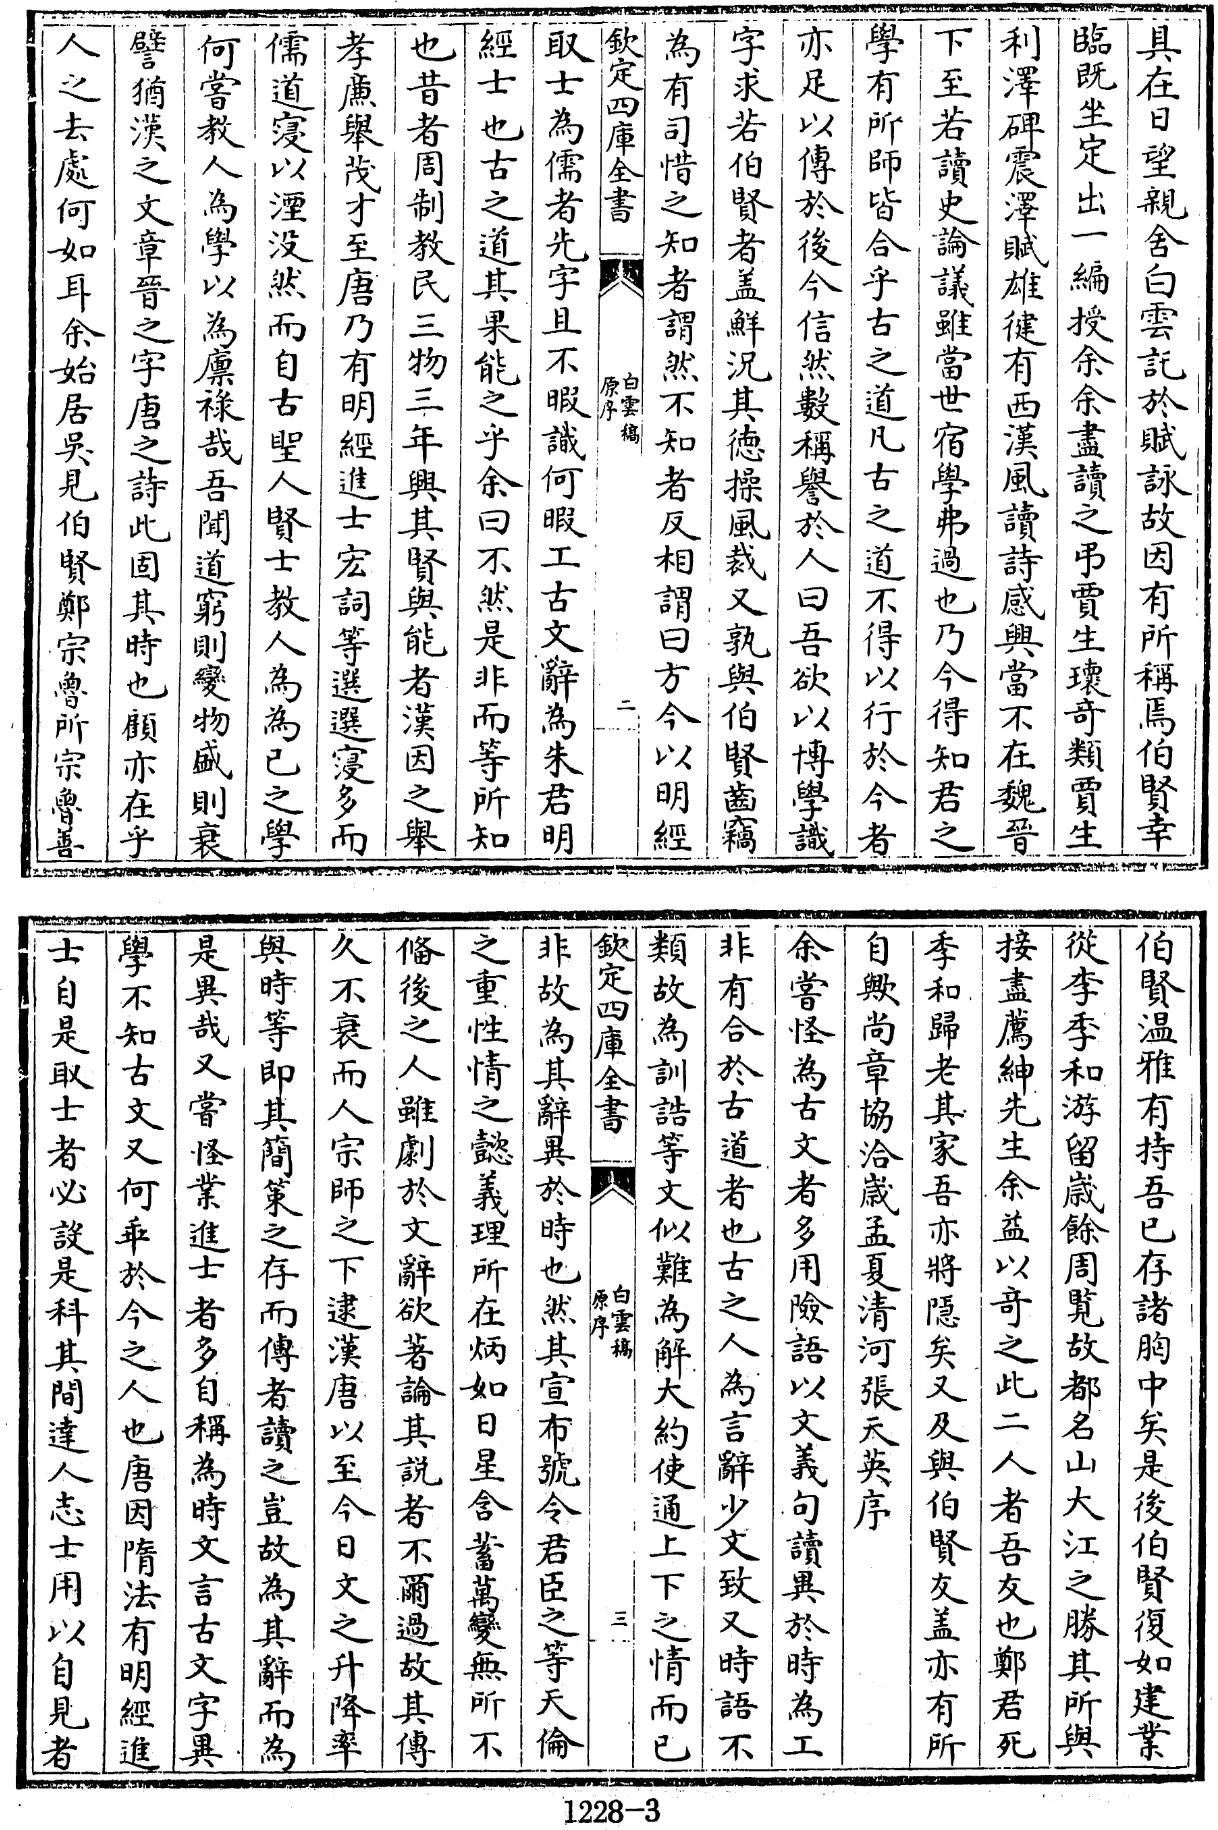 具在日望親舍白雲記於賦詠故因有所稱焉伯賢幸
臨既坐定出一編授余余盡讀之弔賈生瓌奇類賈生
利澤碑震澤賦雄健有西漢風讀詩感興當不在魏晉
下至若讀史論議雖當世宿學弗過也乃今得知君之
學有所師皆合乎古之道凡古之道不得以行於今者
亦足以傳於後今信然數稱譽於人曰吾欲以博學識
字求若伯賢者盖鮮況其德操風裁又孰與伯賢齒竊
為有司惜之知者謂然不知者反相謂曰方今以明經
欽定四庫全書
白雲稿
原序
二
取士為儒者先字且不暇識何暇工古文辭為朱君明
經士也古之道其果能之乎余曰不然是非而等所知
也昔者周制教民三物三年興其賢與能者漢因之舉
孝廉舉茂才至唐乃有明經進士宏詞等選選寖多而
儒道寖以湮没然而自古聖人賢士教人為為己之學
何嘗教人為學以為廪祿哉吾聞道窮則變物盛則衰
譬猶漢之文章晉之字唐之詩此固其時也顧亦在乎
人之去處何如耳余始居吳見伯賢鄭宗魯所宗魯善
伯賢温雅有持吾已存諸胸中矣是後伯賢復如建業
從李季和游留嵗餘周覽故都名山大江之勝其所與
接盡薦紳先生余益以奇之此二人者吾友也鄭君死
季和歸老其家吾亦將隱矣又及與伯賢友盖亦有所
自歟尚章協洽嵗孟夏清河張天英序
余嘗怪為古文者多用險語以文義句讀異於時為工
非有合於古道者也古之人為言辭少文致又時語不
類故為訓誥等文似難為解大約使通上下之情而已
欽定四庫全書
白雲稿
原序
三
非故為其辭異於時也然其宣布號令君臣之等天倫
之重性情之懿義理所在炳如日星含蓄萬變無所不
偹後之人雖劇於文辭欲著論其説者不爾過故其傳
久不衰而人宗師之下逮漢唐以至今日文之升降率
與時等即其簡策之存而傳者讀之豈故為其辭而為
是異哉又嘗怪業進士者多自稱為時文言古文字異
學不知古文又何乖於今之人也唐因隋法有明經進
士自是取士者必設是科其間達人志士用以自見者
1228-3